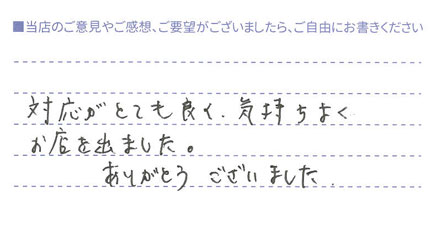 ■当店のご意見やご感想、ご要望がございましたら、ご自由にお書きください
対応がとても良く、気持ちよく
お店を出ました。
ありがとうございました.